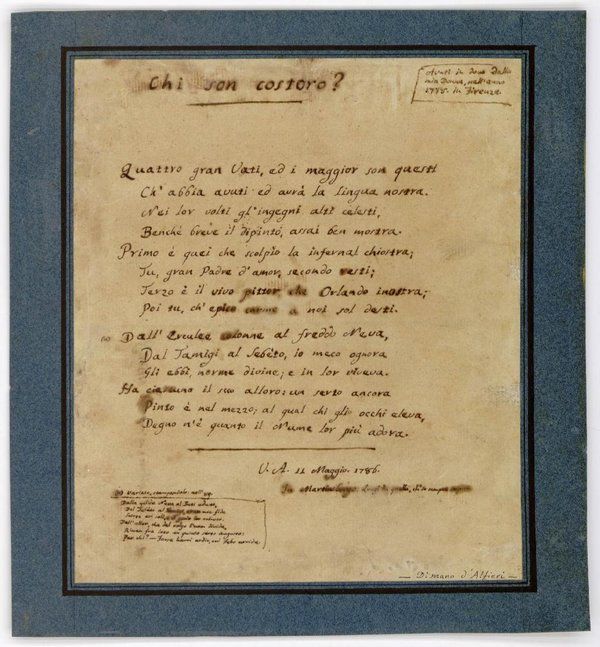 Chi son costoro?
Avuti in dono dalla
mia Donna, nell'anno
1785. in Firenze.
Quattro gran Vati, ed i maggior son questi
Ch' abbia avuti ed avrà la lingua nostra.
Nei lor volti gl'ingegni alti celesti,
Benchè breve il dipinto, assai ben mostra.
Primo è quei che scolpìo la infernal chiostra;
Tu, gran Padre d'amor, secondo resti;
Terzo è il vivo pittor, che Orlando inostra;
Poi tu, ch' epico carme a noi sol desti.
Dall' Erculee colonne al freddo Neva,
Dal Tamigi al Sebéto, io meco ognora
Gli ebbi, norme divine; e in lor viveva.
Ha ciascuno il suo alloro: un serto ancora
Pinto è nel mezzo; al qual chi gli occhi eleva,
Degno n'è quanto il Nume lor più adora.
V. A. 11 Maggio. 1786.
In Martinsborgo.
Variato, stampandolo, nell'
Dalla gelida Neva al Beti adusto,
Dal Sebéto al Tamigi,
Dell'allor, che dal volgo l'uom
Riman fra loro un quinto serto augusto:
Per chi? — Forse havvi ardir, cui Febo arrida.
— Di mano d'Alfieri —